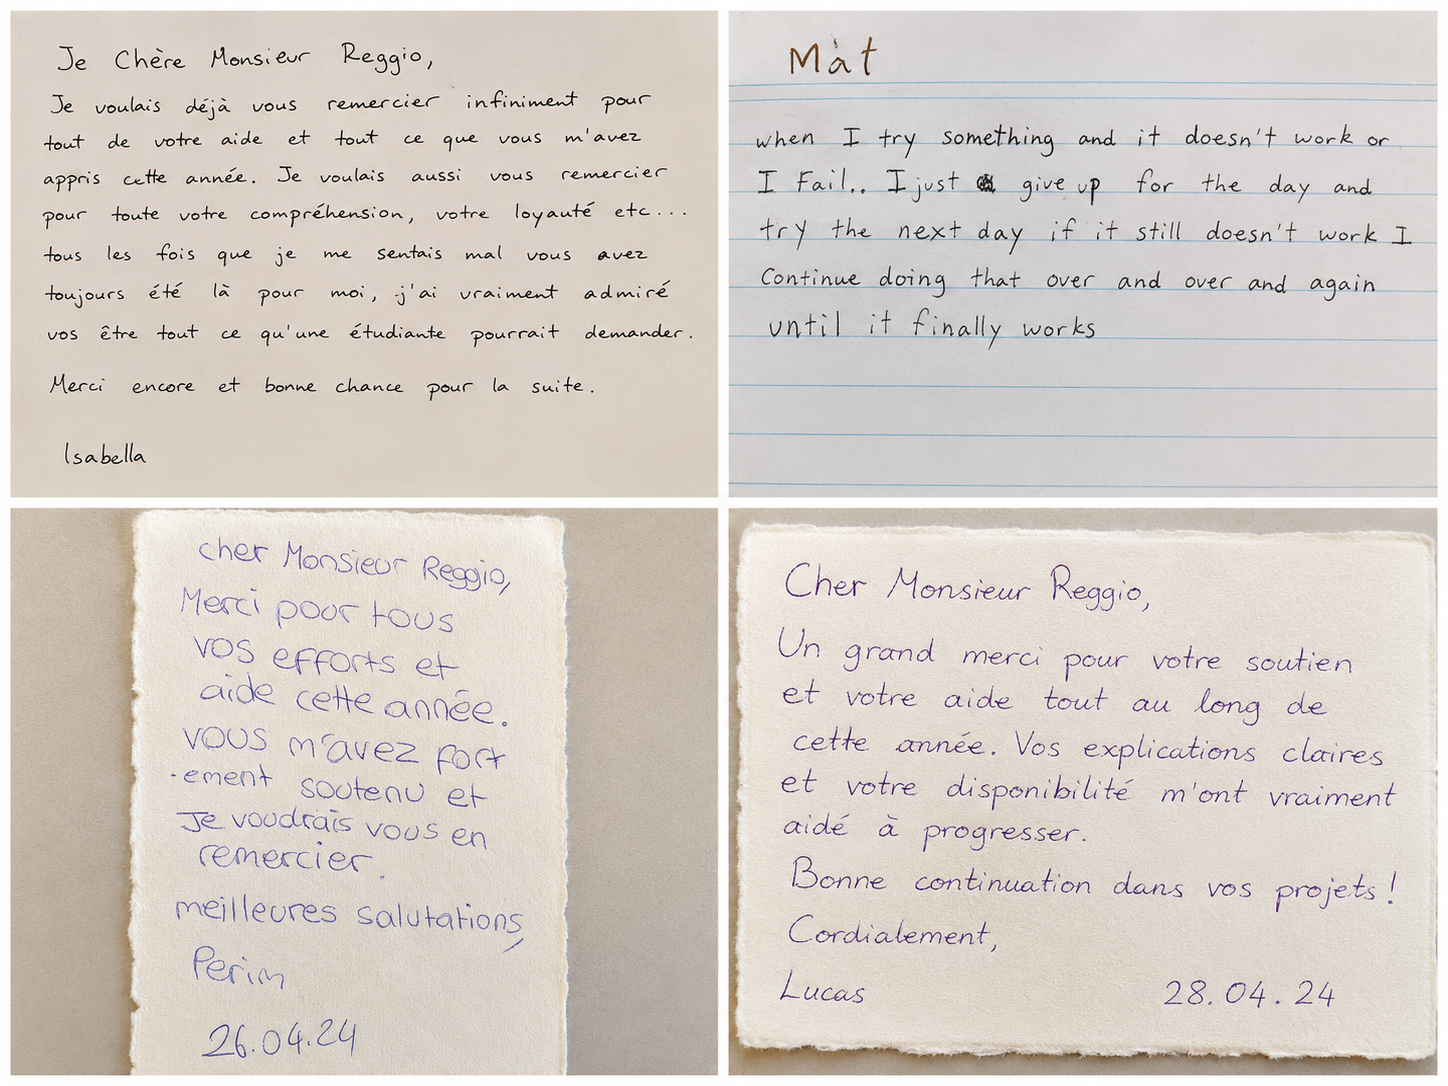 Je Chère Monsieur Reggio,
Je voulais déjà vous remercier infiniment pour
tout de votre aide et tout ce que vous m'avez
appris cette année. Je voulais aussi vous remercier
pour toute votre compréhension, votre loyauté etc...
tous les fois que je me sentais mal vous avez
toujours été là pour moi, j'ai vraiment admiré
vos être tout ce qu'une étudiante pourrait demander.
Merci encore et bonne chance pour la suite.
Isabella
Mat
when I try something and it doesn't work or
I Fail.. I just give up for the day and
try the next day if it still doesn't work I
Continue doing that over and over and again
until it finally works
cher Monsieur Reggio,
Merci pour tous
vos efforts et
aide cette année.
vous m'avez fort
-ement soutenu et
Je voudrais vous en
remercier.
meilleures salutations,
Perim
26.04.24
Cher Monsieur Reggio,
Un grand merci pour votre soutien
et votre aide tout au long de
cette année. Vos explications claires
et votre disponibilité m'ont vraiment
aidé à progresser.
Bonne continuation dans vos projets !
Cordialement,
Lucas 28.04.24